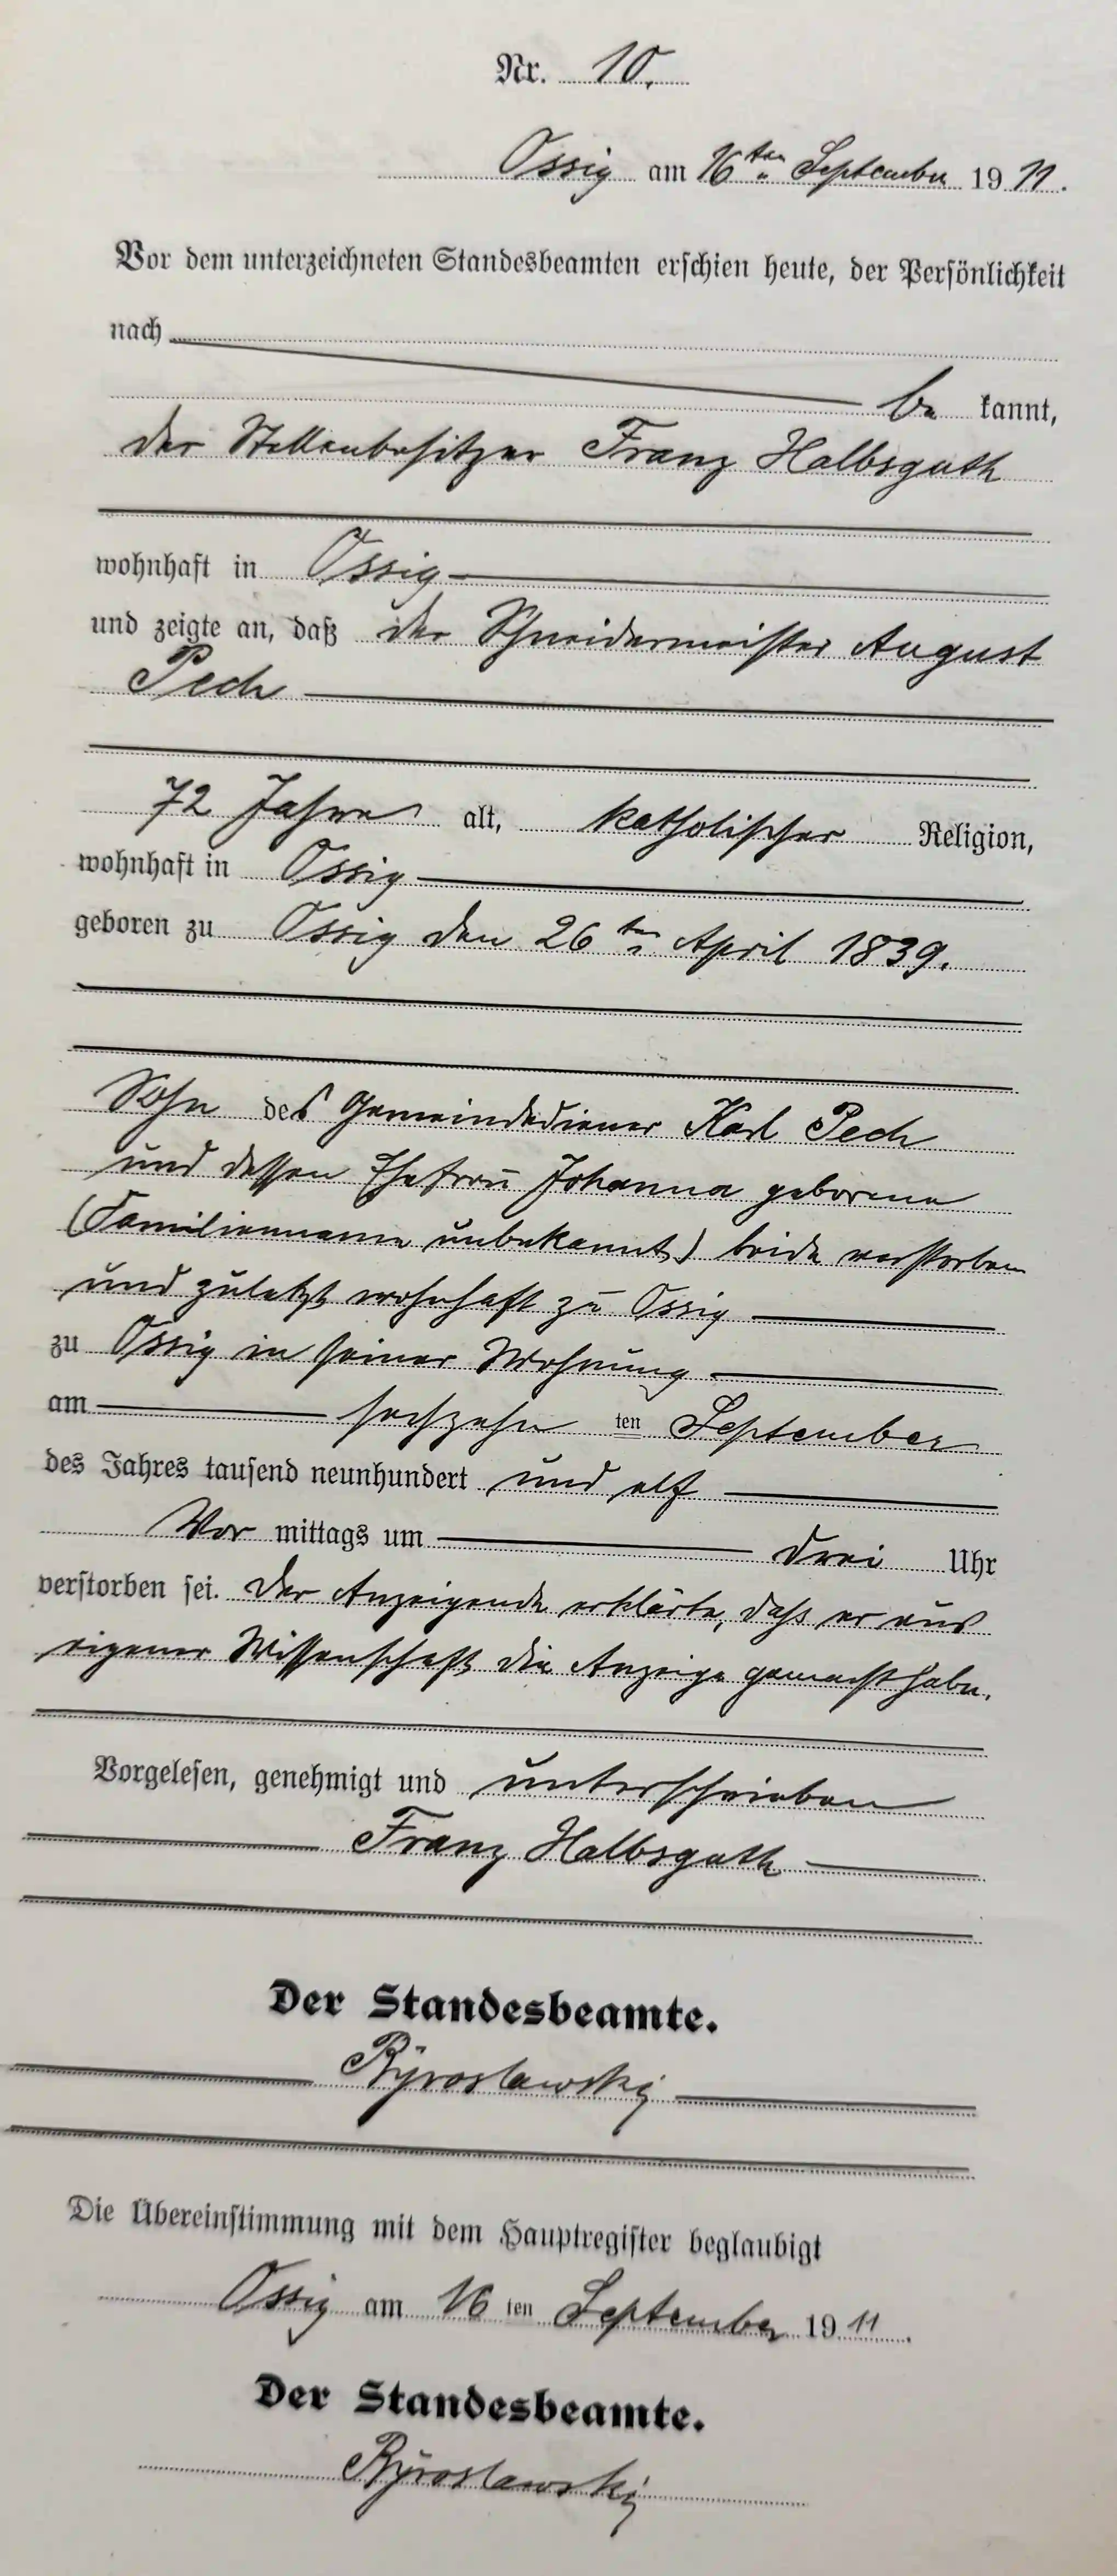 Nr. 10.
Ossig am 16ten September 1911.
Vor dem unterzeichneten Standesbeamten erschien heute, der Persönlichkeit
nach
be kannt,
der Stellenbesitzer Franz Halbsguth
wohnhaft in Ossig
und zeigte an, daß der Schneidermeister August
Pech
72 Jahre alt, katholischer Religion,
wohnhaft in Ossig
geboren zu Ossig den 26ten April 1839.
Sohn des Gemeindediener Karl Pech
und dessen Ehefrau Johanna geborene
(Familienname unbekannt) beide verstorben
und zuletzt wohnhaft zu Ossig
zu Ossig in seiner Wohnung
am sechzehn ten September
des Jahres tausend neunhundert und elf
Vor mittags um drei Uhr
verstorben sei. Der Anzeigende erklärte, daß er aus
eigener Wissenschaft die Anzeige gemacht habe.
Vorgelesen, genehmigt und unterschrieben
Franz Halbsguth
Der Standesbeamte.
Die Übereinstimmung mit dem Hauptregister beglaubigt
Ossig am 16 ten September 1911.
Der Standesbeamte.